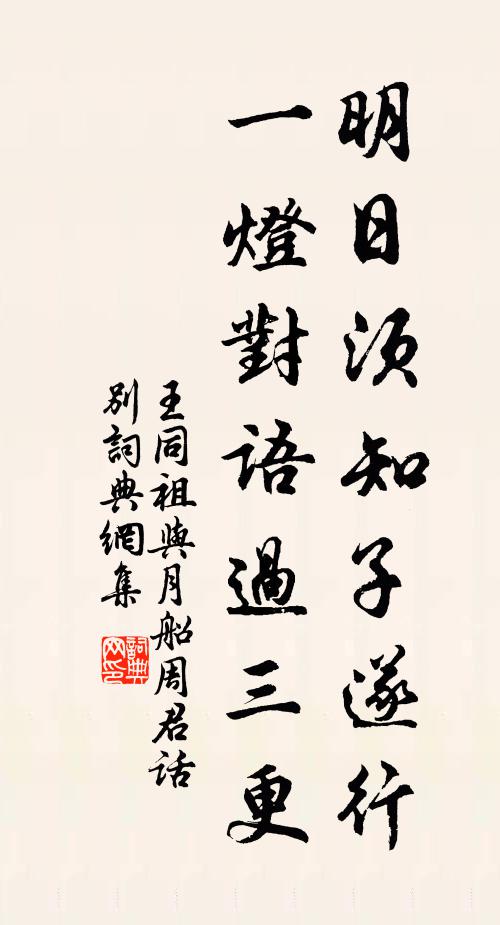 明日須知子遂行
一燈對語過三更
王同祖與月船周君話
別詞典網集
詞典网印